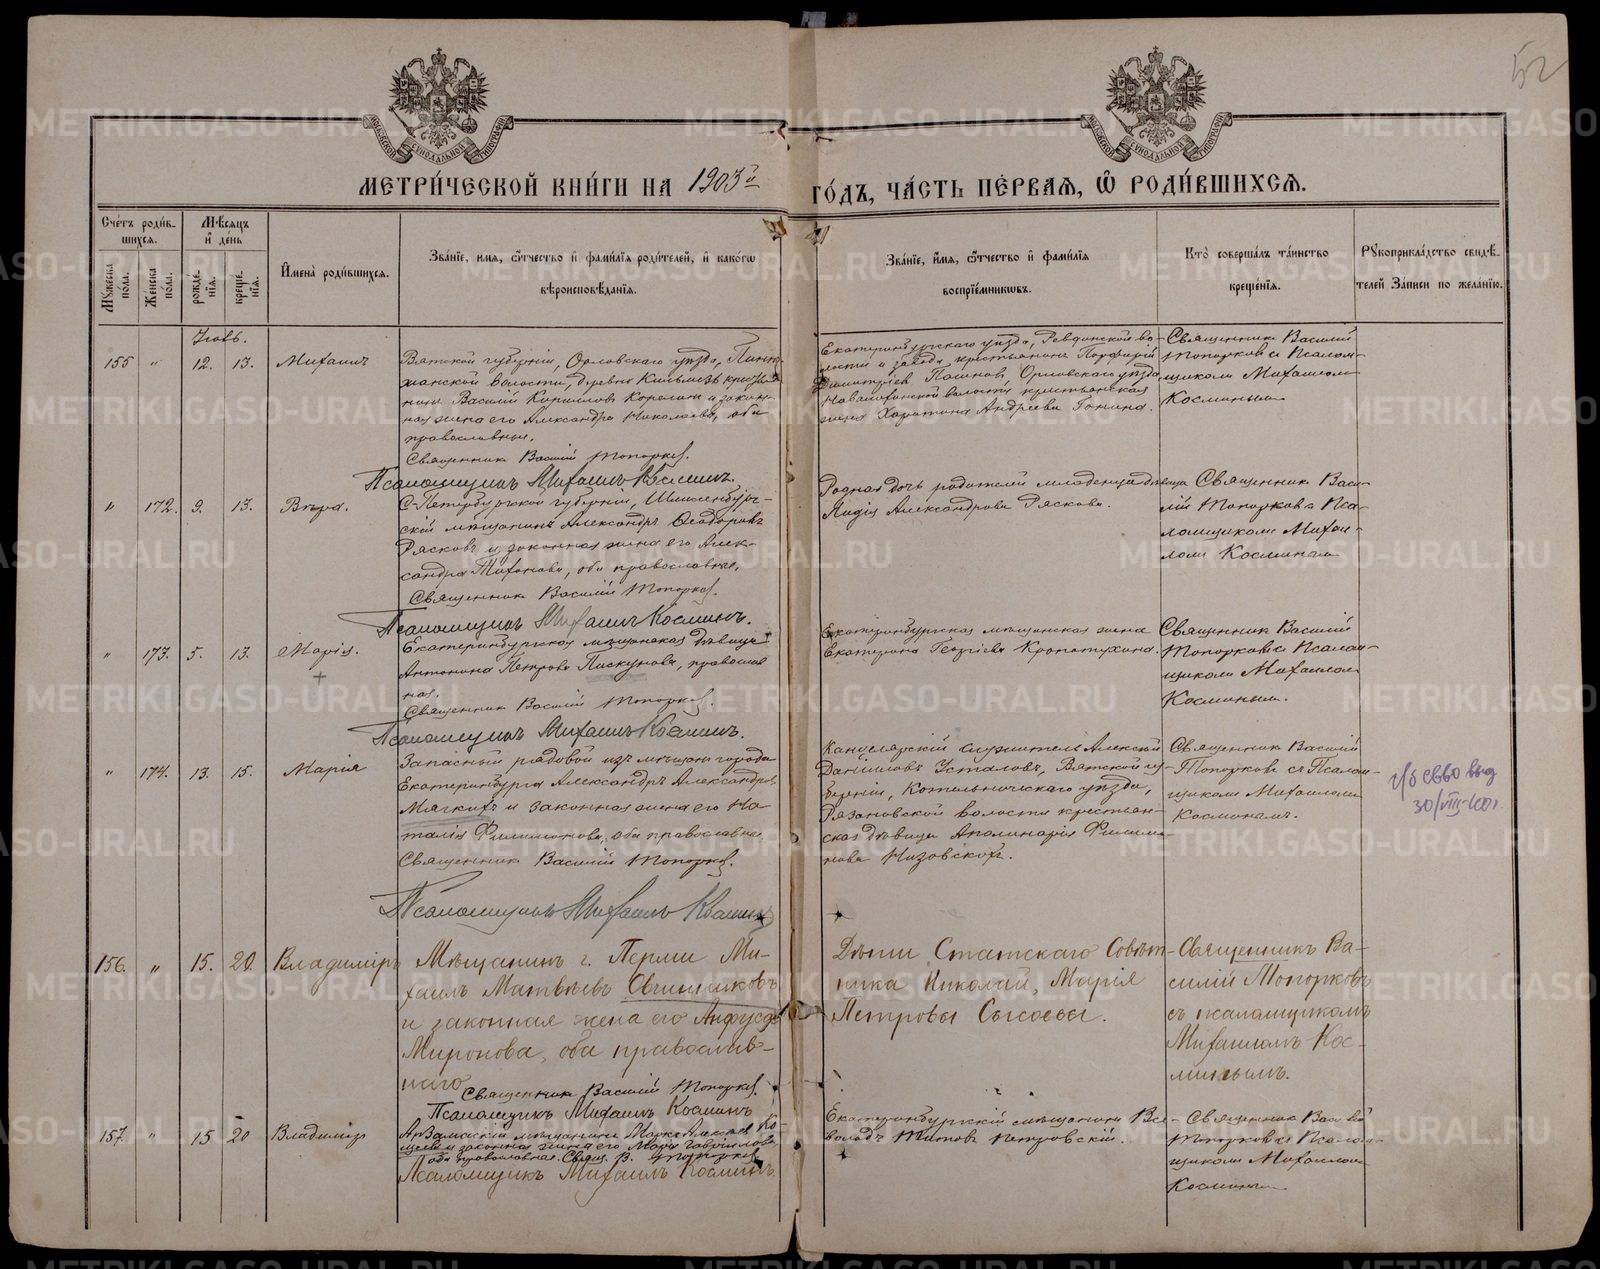 52
МОСКОВСКОЙ СѴНОДАЛЬНОЙ ТИПОГРАФІИ
МОСКОВСКОЙ СѴНОДАЛЬНОЙ ТИПОГРАФІИ
МЕТРИ́ЧЕСКОЙ КНИ́ГИ НА 1903й ГО́ДЪ, ЧА́СТЬ ПЕ́РВАѦ, Ѽ РОДИ́ВШИХСѦ.
Счетъ роди́в-
шихся.
Мѣсяцъ
и день
Мужеска пола.
Женска пола.
рожде́-
нія.
креще́-
нія.
Имена̀ роди́вшихся.
Зва́ніе, имя, ѿчество и фами́лія роди́телей, и како́гѡ
вѣроисповѣ́данія.
Зва́ніе, имя, ѿчество и фами́лія
воспріе́мниковъ.
Кто̀ соверша́лъ та́инство
креще́нія.
Рукоприкла́дство свидѣ́-
телей за́писи по жела́нію.
155 " 12. 13. Михаилъ
Вятской губерніи, Орловскаго уѣзда,
волости, деревни
Василій Кириловъ и закон-
ная жена его Александра Николаева, оба
православные.
Священникъ Василій Топорковъ.
Псаломщикъ Михаилъ Косминъ.
Екатеринбургскаго уѣзда, Ревдинской во-
лости и завода, крестьянинъ Порфирій
Димитріевъ Орловскаго уѣзда,
волости крестьянская
жена Харитона Андреева
Священникъ Василій
Топорковъ съ Псалом-
щикомъ Михаиломъ
Косминымъ
" 172. 9. 13. Вѣра.
С-Петербургской губерніи, Шлиссельбург-
скій мѣщанинъ Александръ Ѳеодоровъ
Рясковъ и законная жена его Алек-
сандра оба православные.
Священникъ Василій Топорковъ.
Псаломщикъ Михаилъ Косминъ.
Родная дочь родителей младенца дѣвица
Лидія Александрова Ряскова.
Священникъ Васи-
лій Топорковъ Пса-
ломщикомъ Михаи-
ломъ Косминымъ
" 173. 5. 13. Марія.
Екатеринбургская мѣщанская дѣвица
Антонина Петрова Пискунова, православ
ная.
Священникъ Василій Топорковъ.
Псаломщикъ Михаилъ Косминъ.
Екатеринбургская мѣщанская жена
Екатерина Георгіева Кропотухина.
Священникъ Василій
Топорковъ съ Псалом-
щикомъ Михаиломъ
Косминымъ.
" 174. 13. 15. Марія
Запасный рядовой изъ мѣщанъ города
Екатеринбурга Александръ Александровъ
Мягкихъ и законная жена его На-
талія Филимонова, оба православные.
Священникъ Василій Топорковъ.
Псаломщикъ Михаилъ Косминъ
Канцелярскій служитель Алексѣй
Данииловъ Усталовъ, Вятской гу-
берніи, Котельническаго уѣзда,
Рязановской волости крестьян-
ская дѣвица Аполинарія Филимо-
нова Низовскихъ.
Священникъ Василій
Топорковъ съ Псалом-
щикомъ Михаиломъ
Косминымъ.
156. " 15. 20. Владиміръ
Мѣщанинъ г. Перми Ми-
хаилъ Матвѣевъ Овчинниковъ
и законная жена его Анфуса
Миронова, оба православ-
наго
Священникъ Василій Топорковъ.
Псаломщикъ Михаилъ Косминъ
Дѣти Статскаго Совѣт-
ника Николай, Марія
Петровы Сысоевы.
Священникъ Ва-
силій Топорковъ
съ псаломщикомъ
Михаиломъ Кос-
минымъ.
157. " 15 20 Владиміръ
Арзамаскій мѣщанинъ
и законная жена его Марія Гавріилова
оба православные. Свящ. В. Топорковъ
Псаломщикъ Михаилъ Косминъ
Екатеринбургскій мѣщанинъ Все-
володъ Титовъ Петровскій.
Священникъ Василій
Топорковъ съ Псалом-
щикомъ Михаиломъ
Косминымъ
METRIKI.GASO-URAL.RU